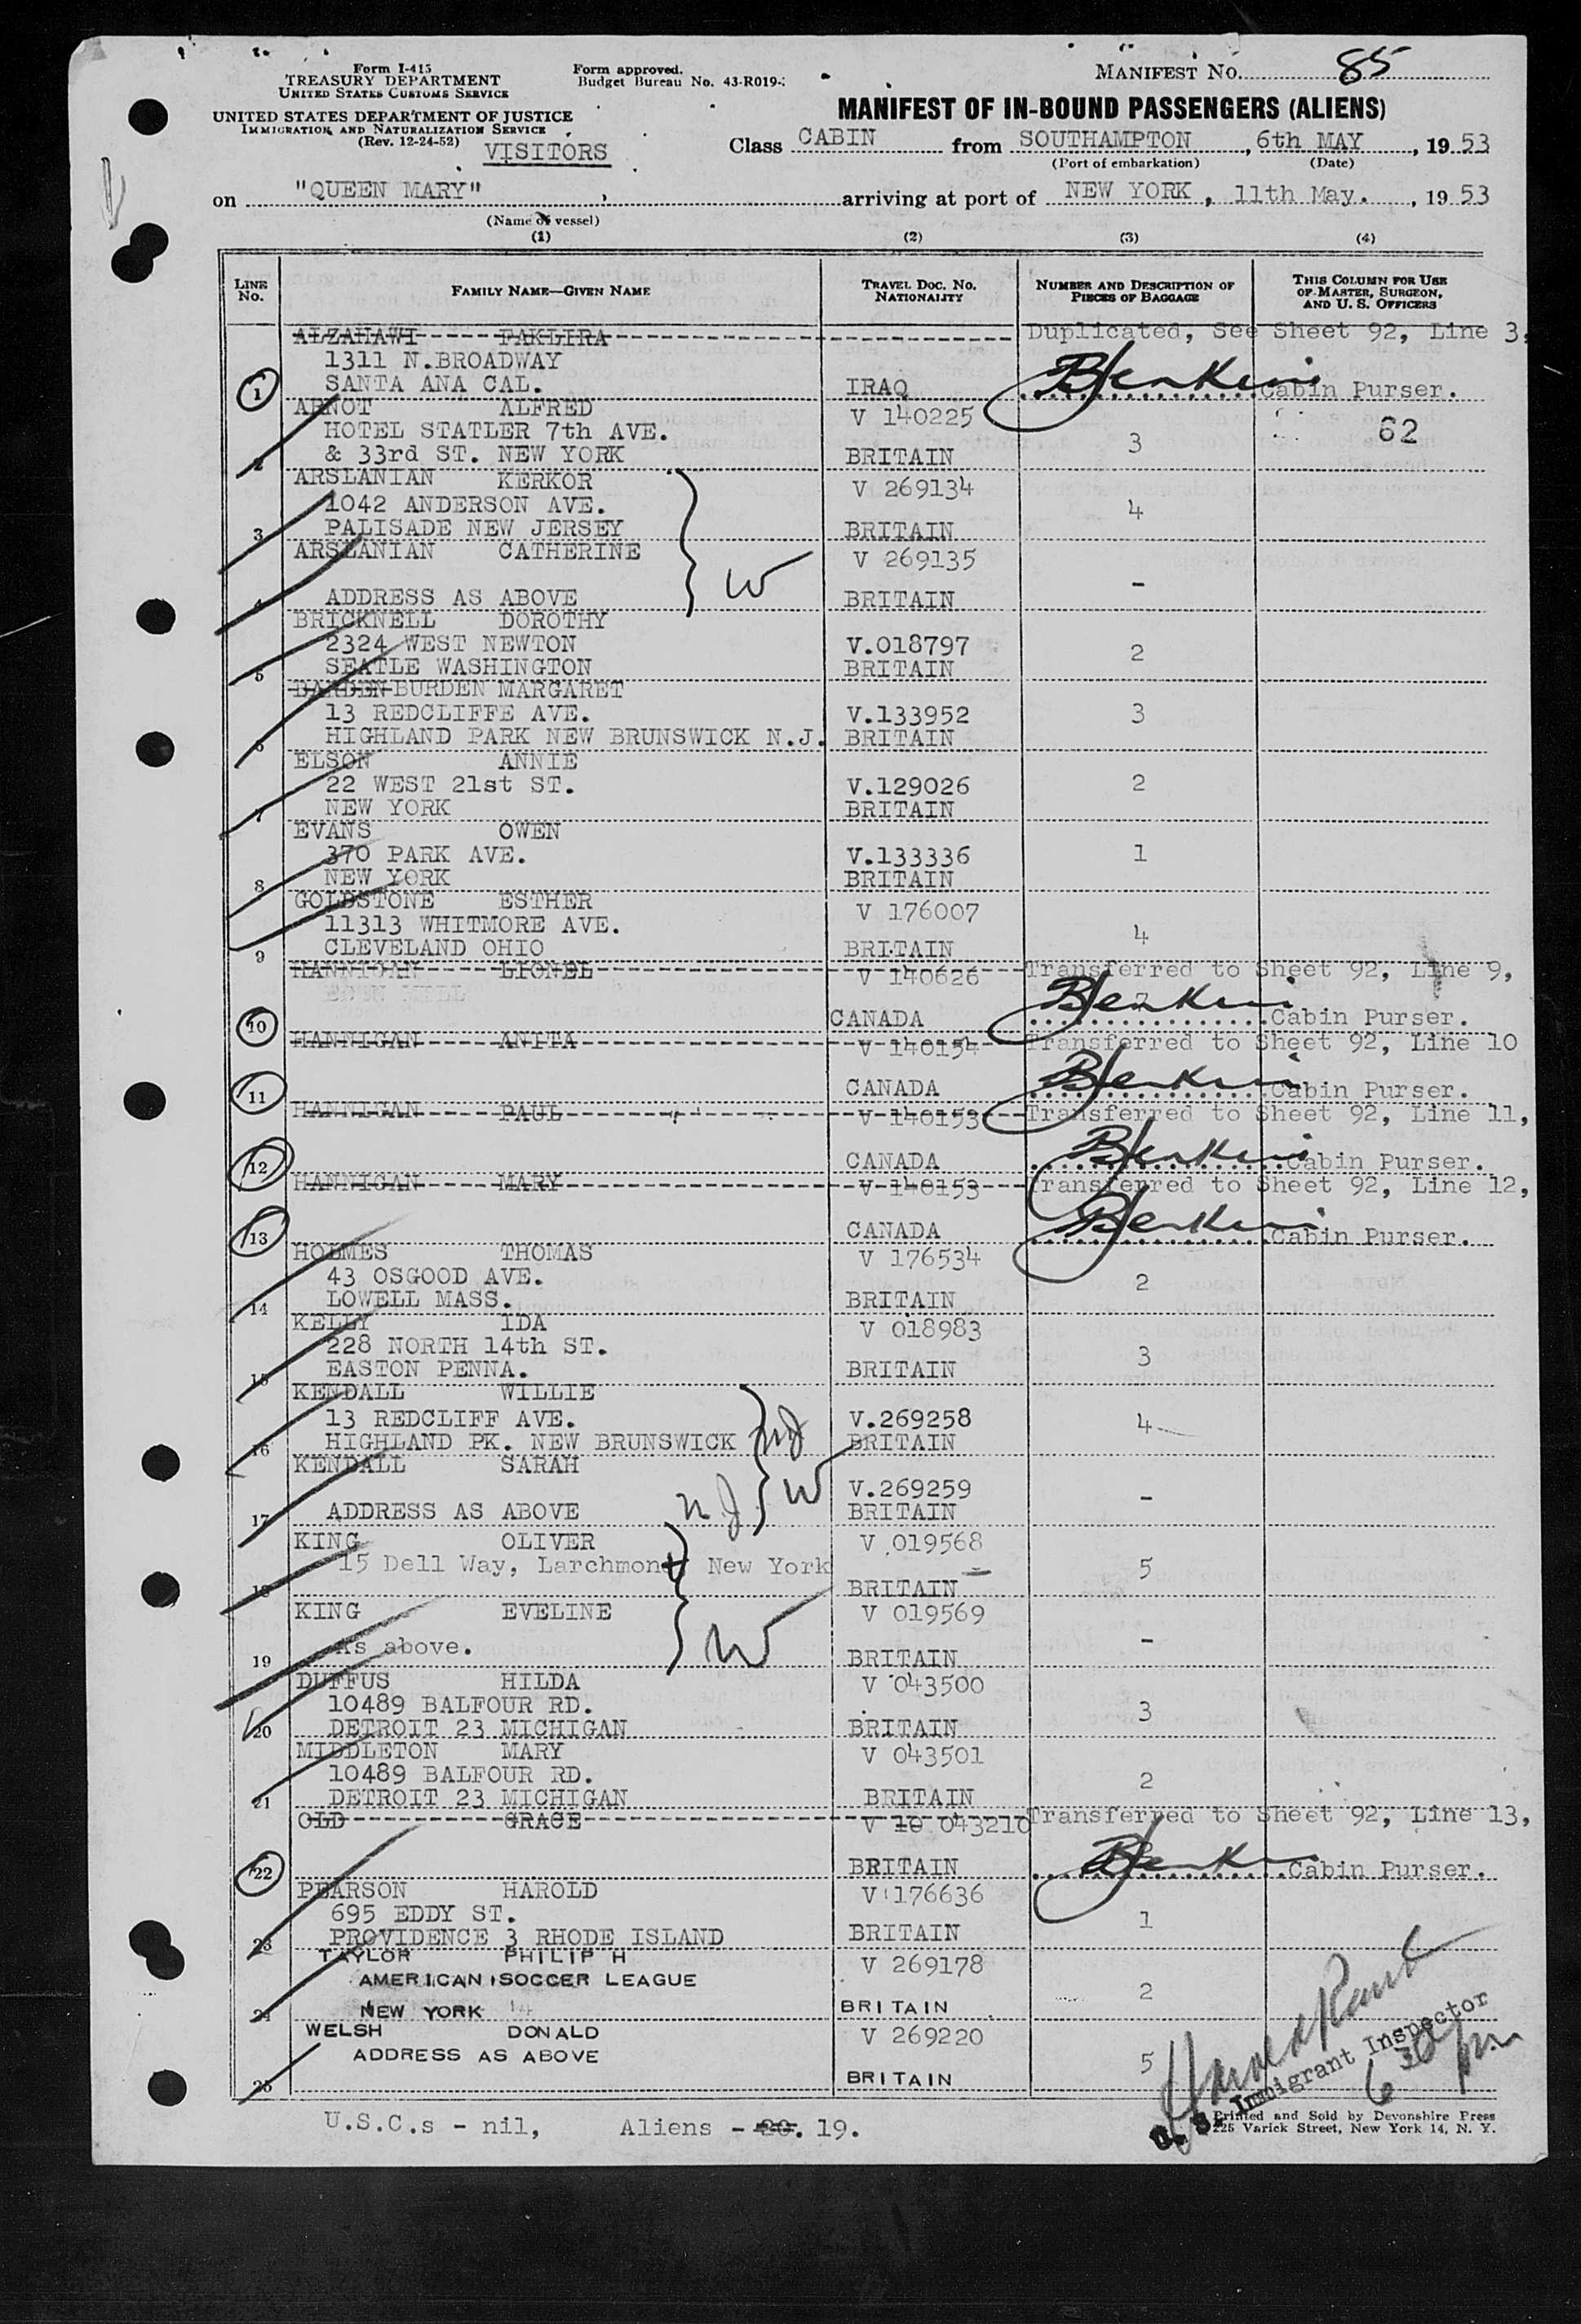 Form I-415
TREASURY DEPARTMENT
UNITED STATES CUSTOMS SERVICE
Form approved.
Budget Bureau No. 43-R019-
MANIFEST NO. 85
UNITED STATES DEPARTMENT OF JUSTICE
IMMIGRATION AND NATURALIZATION SERVICE
(Rev. 12-24-52)
VISITORS
MANIFEST OF IN-BOUND PASSENGERS (ALIENS)
Class CABIN from SOUTHAMPTON, 6th MAY, 1953
(Port of embarkation) (Date)
on "QUEEN MARY", arriving at port of NEW YORK, 11th May., 1953
(Name of vessel)
(1) (2) (3) (4)
LINE No. FAMILY NAME—GIVEN NAME TRAVEL DOC. NO. NATIONALITY NUMBER AND DESCRIPTION OF PIECES OF BAGGAGE THIS COLUMN FOR USE OF MASTER, SURGEON, AND U. S. OFFICERS
ALZAHAWI FAKLIRA Duplicated, See Sheet 92, Line 3,
1311 N.BROADWAY
1 SANTA ANA CAL. IRAQ Cabin Purser.
ARNOT ALFRED V 140225 62
HOTEL STATLER 7th AVE. 3
& 33rd ST. NEW YORK BRITAIN
ARSLANIAN KERKOR V 269134
1042 ANDERSON AVE. 4
3 PALISADE NEW JERSEY BRITAIN
ARSLANIAN CATHERINE V 269135
W -
4 ADDRESS AS ABOVE BRITAIN
BRICKNELL DOROTHY
2324 WEST NEWTON V.018797 2
5 SEATLE WASHINGTON BRITAIN
BARDEN BURDEN MARGARET
13 REDCLIFFE AVE. V.133952 3
6 HIGHLAND PARK NEW BRUNSWICK N.J. BRITAIN
ELSON ANNIE
22 WEST 21st ST. V.129026 2
7 NEW YORK BRITAIN
EVANS OWEN
370 PARK AVE. V.133336 1
8 NEW YORK BRITAIN
GOLDSTONE ESTHER V 176007
11313 WHITMORE AVE. 4
9 CLEVELAND OHIO BRITAIN
HANNIGAN LIONEL V 140626 Transferred to Sheet 92, Line 9,
10 CANADA Cabin Purser.
HANNIGAN ANITA V 140154 Transferred to Sheet 92, Line 10
11 CANADA Cabin Purser.
HANNIGAN PAUL V 140153 Transferred to Sheet 92, Line 11,
12 CANADA Cabin Purser.
HANNIGAN MARY V 140153 Transferred to Sheet 92, Line 12,
13 CANADA Cabin Purser.
HOLMES THOMAS V 176534
43 OSGOOD AVE. 2
14 LOWELL MASS. BRITAIN
KELLY IDA V 018983
228 NORTH 14th ST. 3
15 EASTON PENNA. BRITAIN
KENDALL WILLIE
13 REDCLIFF AVE. V.269258 4
16 HIGHLAND PK. NEW BRUNSWICK NJ BRITAIN
KENDALL SARAH
W V.269259 -
17 ADDRESS AS ABOVE N J BRITAIN
KING OLIVER V 019568
15 Dell Way, Larchmont New York 5
18 BRITAIN
KING EVELINE V 019569
As above. W -
19 BRITAIN
DUFFUS HILDA V 043500
10489 BALFOUR RD. 3
20 DETROIT 23 MICHIGAN BRITAIN
MIDDLETON MARY V 043501
10489 BALFOUR RD. 2
21 DETROIT 23 MICHIGAN BRITAIN
OLD GRACE V 10 043210 Transferred to Sheet 92, Line 13,
22 BRITAIN Cabin Purser.
PEARSON HAROLD V 176636
695 EDDY ST. 1
23 PROVIDENCE 3 RHODE ISLAND BRITAIN
TAYLOR PHILIP H V 269178
AMERICAN SOCCER LEAGUE 2
24 NEW YORK BRITAIN
WELSH DONALD V 269220
ADDRESS AS ABOVE 5
25 BRITAIN
U. S. Immigrant Inspector
6 30 pm
U.S.C.s - nil, Aliens - 20. 19.
Printed and Sold by Devonshire Press
225 Varick Street, New York 14, N. Y.